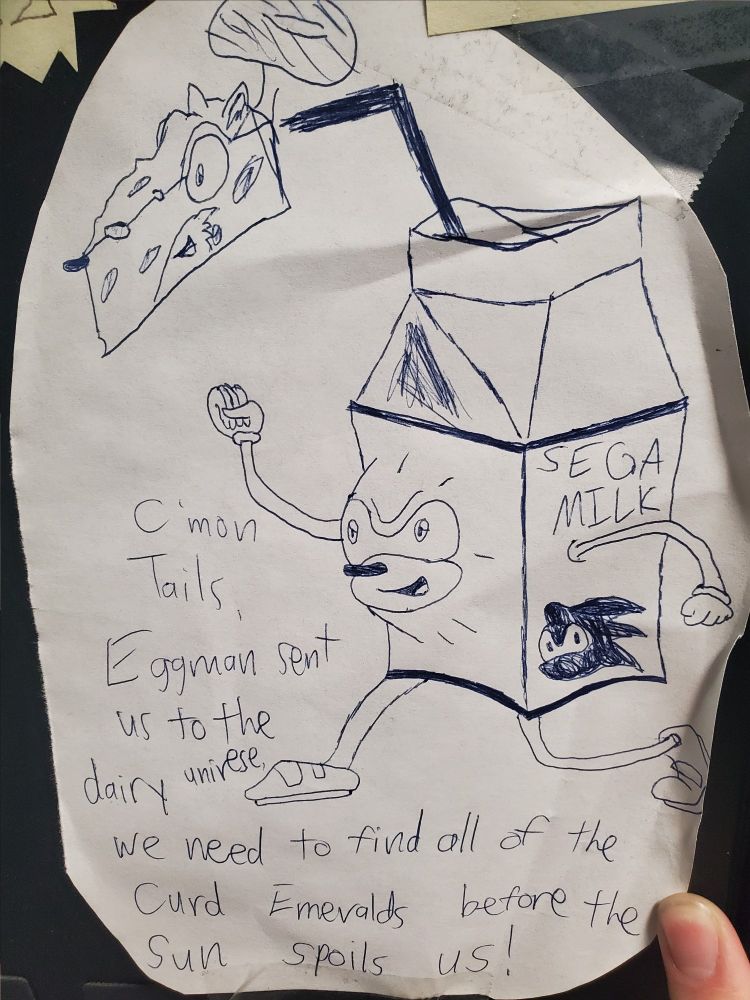 SEGA
MILK
C'mon
Tails,
Eggman sent
us to the
dairy univese,
we need to find all of the
Curd Emeralds before the
Sun spoils us!